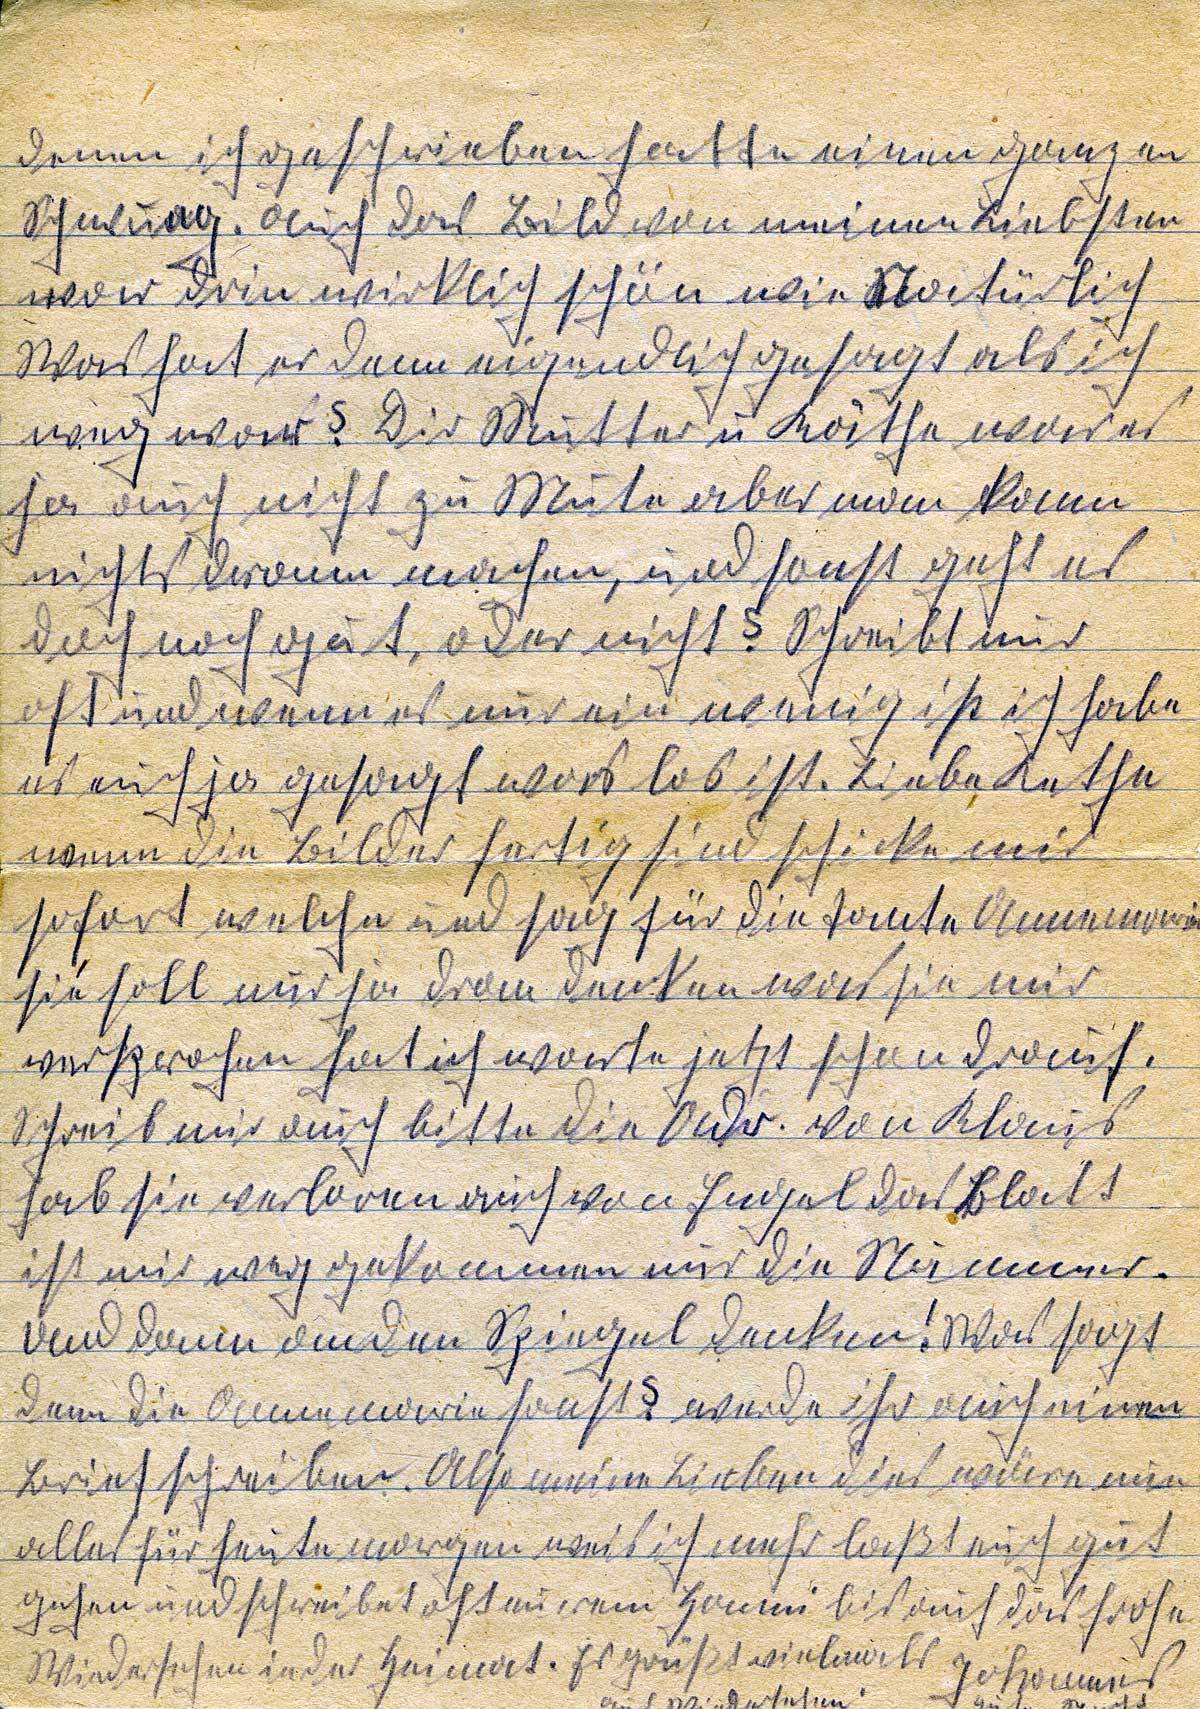 denen ich geschrieben hatte einen ganzen
Schwung. Auch das Bild von meinen Liebsten
war drin wirklich schön wie Natürlich
Was hat er denn eigendlich gesagt als ich
weg war? Dir Mutter u Käthe war es
ja auch nicht zu Mute aber man kann
nichts drann machen, und sonst geht es
doch noch gut, oder nicht? Schreibt mir
oft und wenn es nur ein wenig ist ich habe
es euch ja gesagt was los ist. Liebe Kethe
wenn die Bilder fertig sind schicke mir
sofort welche und sag für die Tante Annemarie
sie soll nur ja dran denken was sie mir
versprochen hat ich warte jetzt schon drauf.
Schreib mir auch bitte die Adr. von Klaus
hab sie verloren auch von Hugel das Blatt
ist mir weg gekommen nur die Nummer.
Und dann an den Spiegel denken! Was sagt
denn die Annemarie sonst? werde ihr auch einen
Brief schreiben. Also meine Lieben dies wäre nun
alles für heute morgen weis ich mehr laßt euch gut
gehen und schreibet oft eurem Hanni bis auf das frohe
Wiedersehen in der Heimat. Es grüßt vielmals Johannes
auf Wiedersehen!